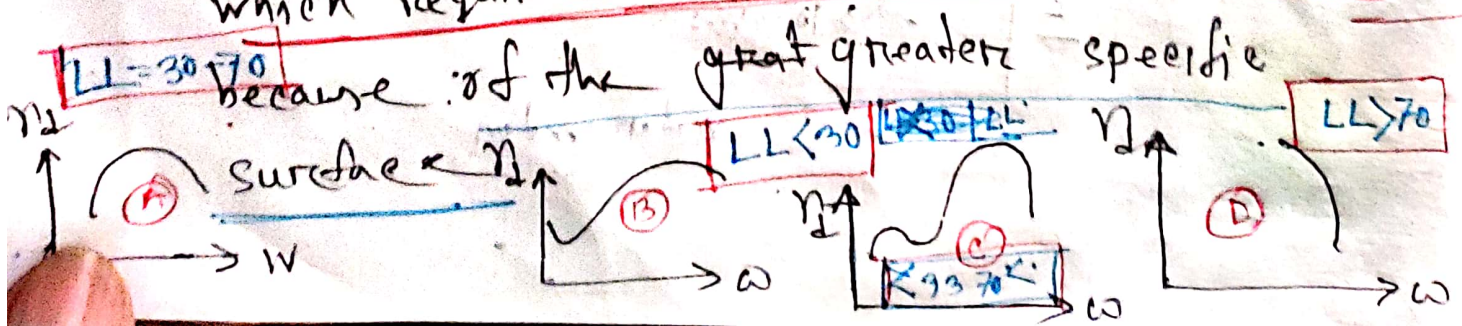 which
LL=30-70
because of the great greater specific
surface
LL<30
LL>70
A
B
C
D
W
ω
ω
ω